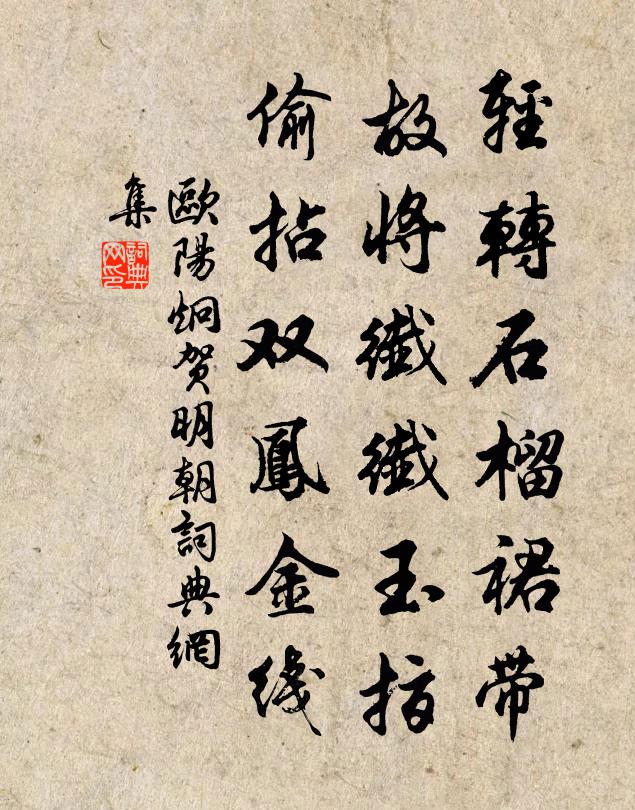 輕轉石榴裙带
故將纖纖玉指
偷拈双鳳金线
歐陽炯贺明朝詞典網
集
詞典
网印